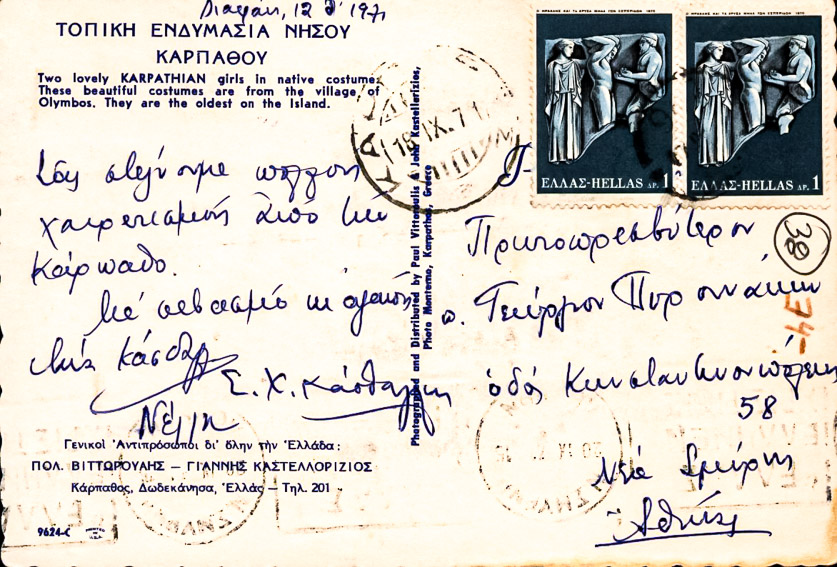 12 1971
ΤΟΠΙΚΗ ΕΝΔΥΜΑΣΙΑ ΝΗΣΟΥ
ΚΑΡΠΑΘΟΥ
Two lovely KARPATHIAN girls in native costume.
These beautiful costumes are from the village of
Olymbos. They are the oldest on the Island.
Σᾶς στέλνουμε πολλούς
χαιρετισμούς ἀπό τήν
Κάρπαθο.
Μέ σεβασμό κι ἀγάπη
Ε. Χ.
Νέλλη
Γενικοί Ἀντιπρόσωποι δι' ὅλην τὴν Ἑλλάδα:
ΠΟΛ. ΒΙΤΤΩΡΟΥΛΗΣ – ΓΙΑΝΝΗΣ ΚΑΣΤΕΛΛΟΡΙΖΙΟΣ
Κάρπαθος, Δωδεκάνησα, Ἑλλάς – Τηλ. 201
9624-C
Photographed and Distributed by Paul Vittoroulis & John Kastellerizios,
Photo Monterno, Karpathos, Greece
IX. 71
ΕΛΛΑΣ-HELLAS ΔΡ. 1
ΕΛΛΑΣ-HELLAS ΔΡ. 1
38
Πρωτοπρεσβύτερον
π. Γεώργιον Πυρουνάκην
34-
ὁδός Κωνσταντινουπόλεως
58
Νέα Σμύρνη
Ἀθήνας